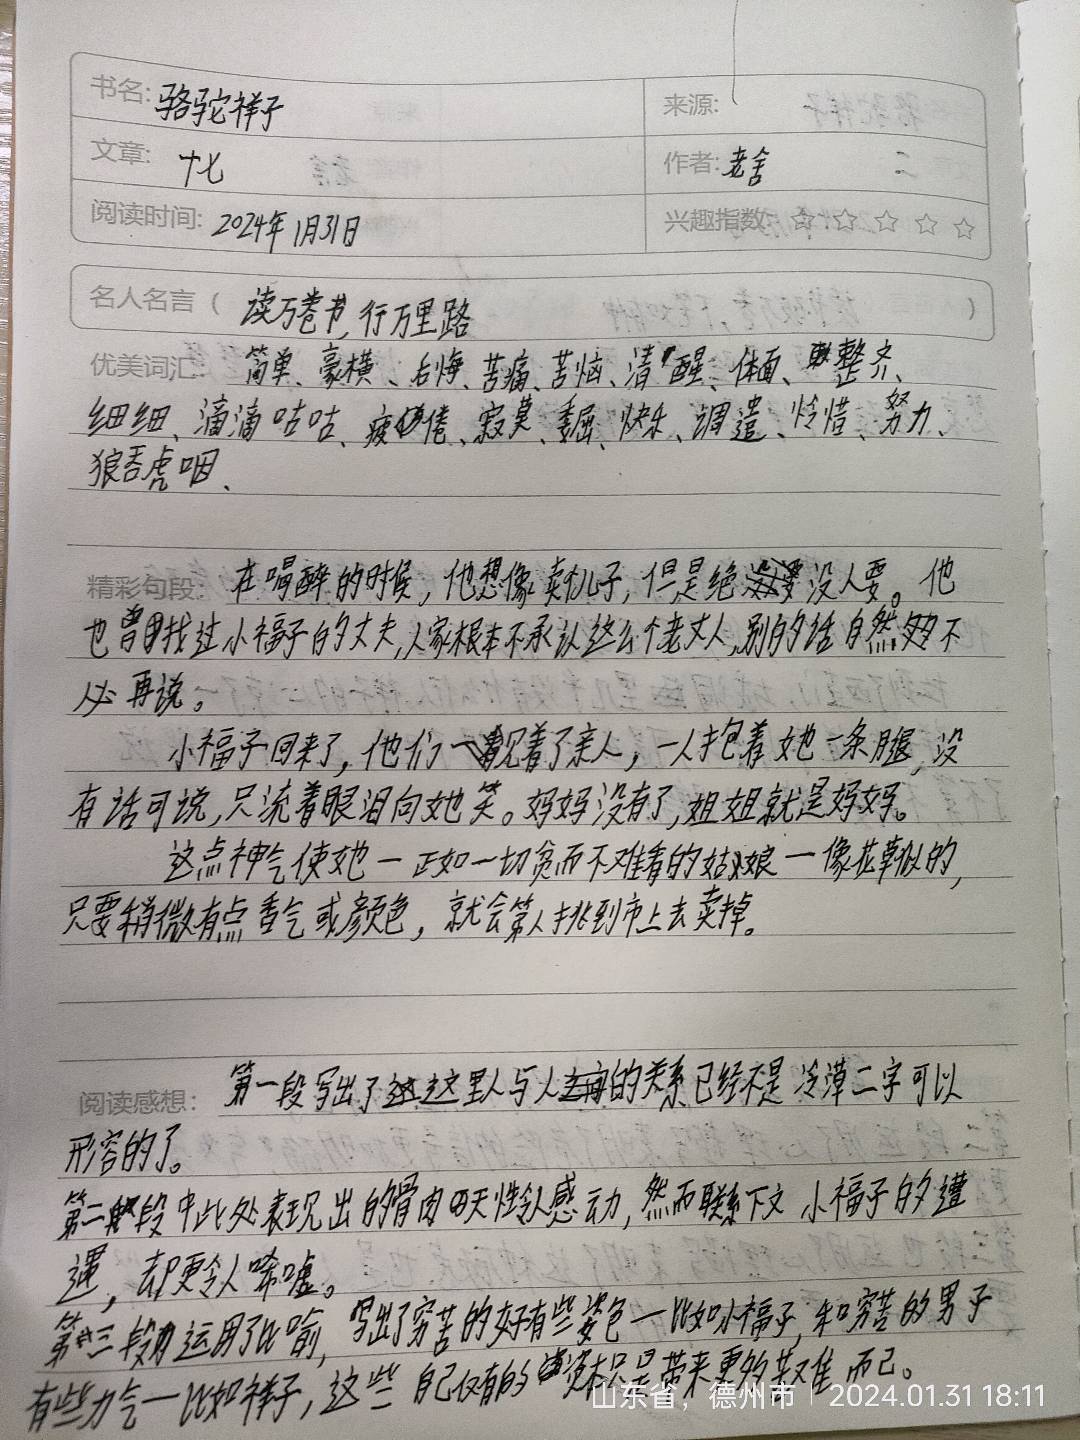 书名: 骆驼祥子
来源:
文章: 十七
作者: 老舍
阅读时间: 2024年1月31日
兴趣指数: ☆ ☆ ☆ ☆ ☆
名人名言 ( 读万卷书,行万里路 )
优美词汇: 简单、豪横、后悔、苦痛、苦恼、清醒、体面、整齐、
细细、滴滴咕咕、疲倦、寂莫、委屈、快乐、调遣、怜惜、努力、
狼吞虎咽、
精彩句段: 在喝醉的时候,他想像卖儿子,但是绝没人要。他
也曾找过小福子的丈夫,人家根本不承认这么个老丈人,别的话自然不
必再说。
小福子回来了,他们见着了亲人,一人抱着她一条腿,没
有话可说,只流着眼泪向她笑。妈妈没有了,姐姐就是妈妈。
这点神气使她—正如一切贫而不难看的姑娘—像花草似的,
只要稍微有点香气或颜色,就会第人挑到市上去卖掉。
阅读感想: 第一段写出了这里人与人之间的关系已经不是冷漠二字可以
形容的了。
第二段中此处表现出的骨肉天性令人感动,然而联系下文小福子的遭
遇,却更令人唏嘘。
第三段运用了比喻,写出了穷苦的女子有些姿色—比如小福子,和穷苦的男子
有些力气—比如祥子,这些自己仅有的资本只是带来更多苦难而已。
山东省,德州市 | 2024.01.31 18:11